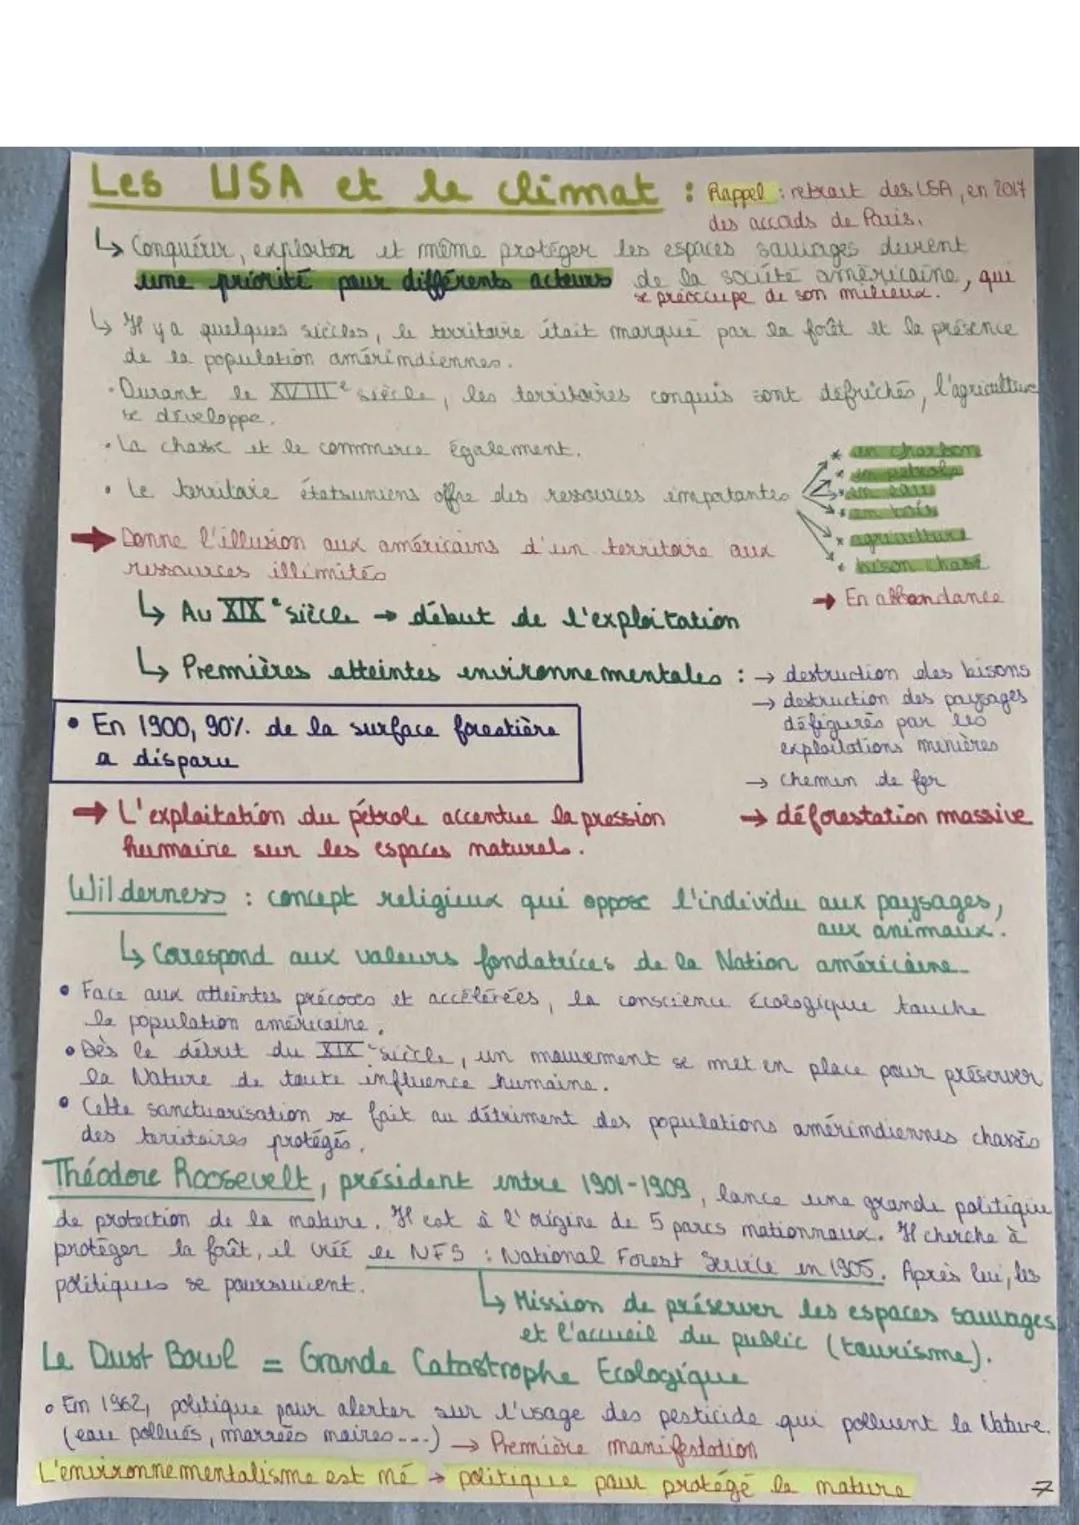 Les USA et le climat : Rappel : retrait des USA, en 2017
des accords de Paris.
↳ Conquérir, exploiter et même protéger les espaces sauvages devient
une priorité pour différents acteurs de la société américaine, qui
se préoccupe de son milieux.
↳ Il y a quelques siècles, le territoire était marqué par la forêt et la présence
de la population amérindiennes.
• Durant le XVIIIe siècle, les territoires conquis sont défrichés, l'agriculture
se développe.
• La chasse et le commerce également.
• Le territoire étatsuniens offre des ressources importantes
* en charbon
* en pétrole
* en eau
* en bois
* agriculture
* bison chassé
→ En abbondance
→ Donne l'illusion aux américains d'un territoire aux
ressources illimités
↳ Au XIXe siècle → début de l'exploitation
↳ Premières atteintes environnementales : → destruction des bisons
→ destruction des paysages
défigurés par les
exploitations minières
→ chemin de fer
→ déforestation massive
• En 1900, 90% de la surface forestière
a disparu
→ L'exploitation du pétrole accentue la pression
humaine sur les espaces naturels.
Wilderness : concept religieux qui oppose l'individu aux paysages,
aux animaux.
↳ Correspond aux valeurs fondatrices de la Nation américaine.
• Face aux atteintes précoces et accélérées, la conscience écologique touche
la population américaine.
• Dès le début du XIXe siècle, un mouvement se met en place pour préserver
la Nature de toute influence humaine.
• Cette sanctuarisation se fait au détriment des populations amérindiennes chassés
des territoires protégés.
Théodore Roosevelt, président entre 1901-1909, lance une grande politique
de protection de la nature. Il est à l'origine de 5 parcs nationnaux. Il cherche à
protéger la forêt, il créé le NFS : National Forest Service en 1905. Après lui, les
politiques se poursuivent.
↳ Mission de préserver les espaces sauvages
et l'accueil du public (tourisme).
Le Dust Bowl = Grande Catastrophe Ecologique
• En 1962, politique pour alerter sur l'usage des pesticide qui polluent la Nature.
(eau pollués, marrées noires...) → Première manifestation
L'environnementalisme est né → politique pour protégé la nature
7